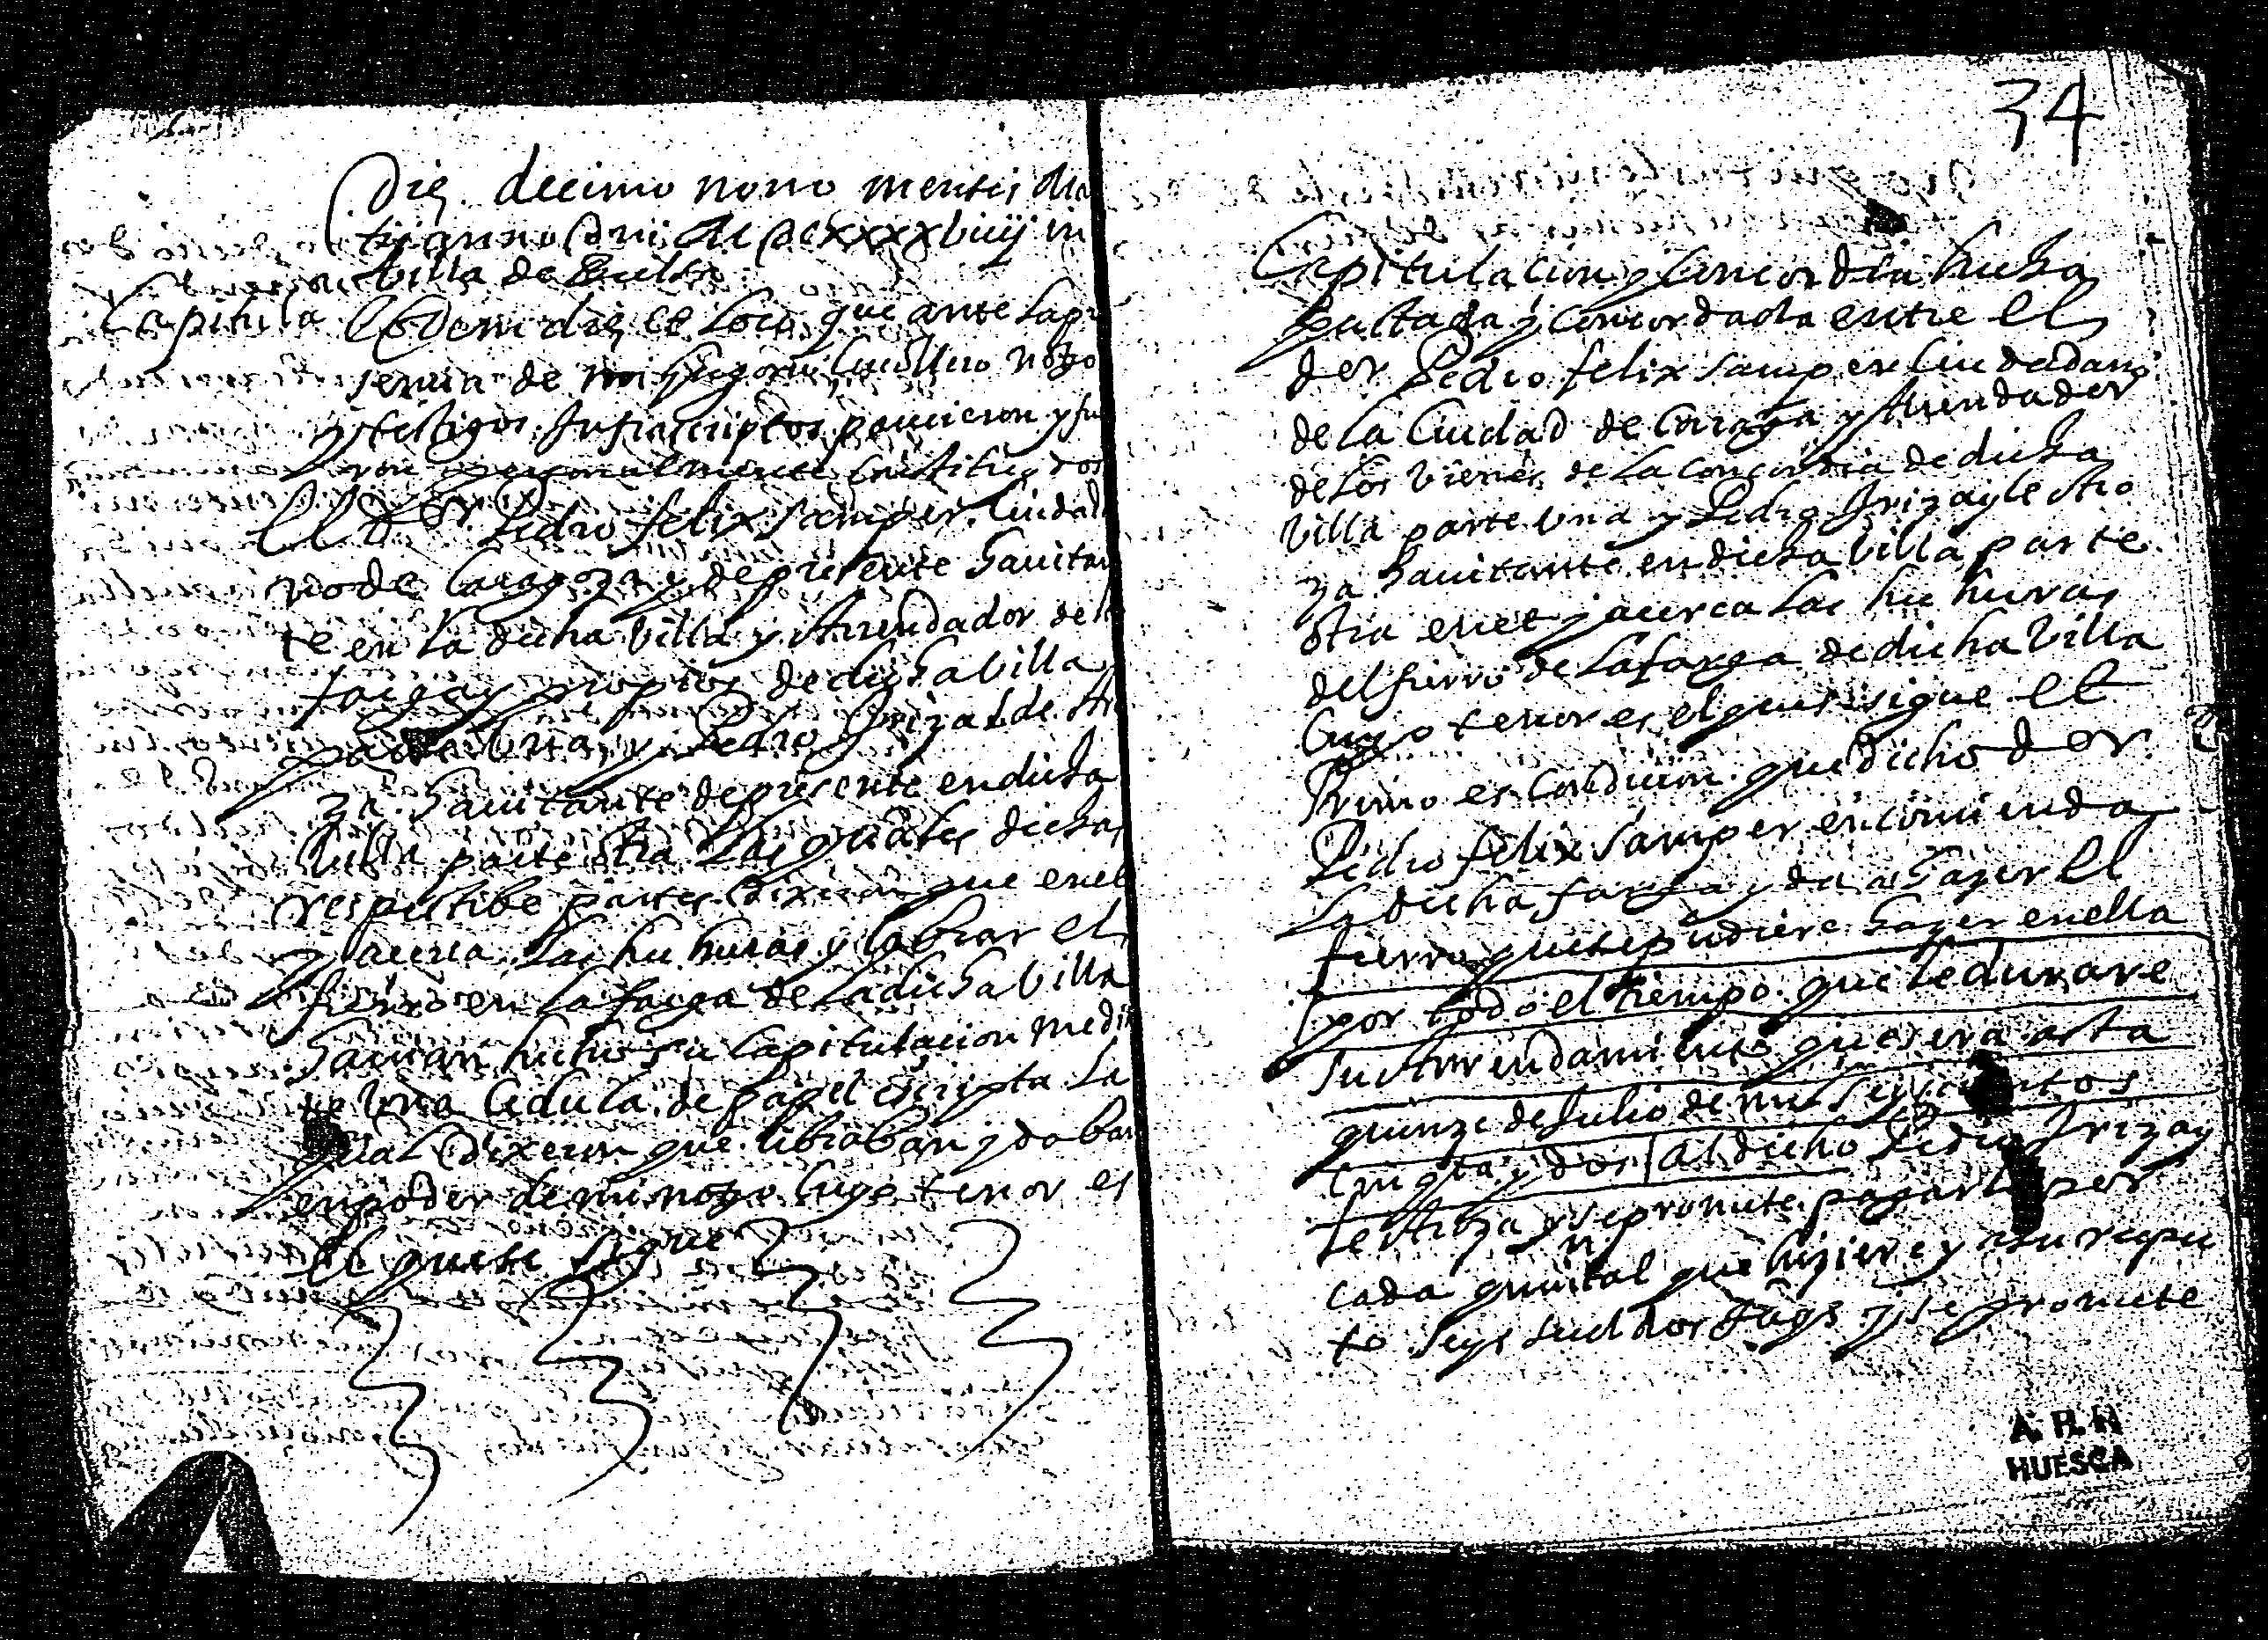 Die decimo nono mensis
anno Dni MDCxxxxbiiij in
billa de
Capitula Eodem die et loco que ante la pre
sencia de mi notro
y testigos Infrascriptos parecieron y fue
ron personalmente constituydos
El Dor Pedro felix Samper Ciudada
no de Caragoza y de presente hauitan
te en la dicha billa y Arrendador de la
farga y propios de dicha billa
parte una y Pedro Irizal de
za hauitante de presente en dicha
billa parte otra las quales dichas
respectibe partes dixeron que en el
y acerca las huchuras y labrar el
fierro en la farga de la dicha billa
hauian hecho su Capitulacion median
te una Cedula de papel escripta la
qual dixeron que libraban y daban
en poder de mi notro Cuyo tenor es
El que se sigue
34
Capitulacion y Concordia hecha
pactada y Concordada entre el
dor Pedro felix Samper Ciudadano
de la Ciudad de Caragoza y Arrendador
de los bienes de la Concordia de dicha
billa parte una y Pedro Irizay
za hauitante en dicha billa parte
otra en et y acerca las huchuras
del fierro de la farga de dicha billa
Cuyo tenor es el que se sigue et
Primo es Condicion que dicho dor
Pedro felix Samper encomienda
la dicha farga y da a hazer el
fierro que se pudiere hazer en ella
por todo el tiempo que le durare
su Arrendamiento que sera asta
quinze de Julio de mil seyscientos
Cinqta y dos al dicho Pedro Irizay
y se promete pagarle por
cada quintal que hiziere y a su respec
to seys sueldos Jaqs y se promete
A. H. N
HUESCA